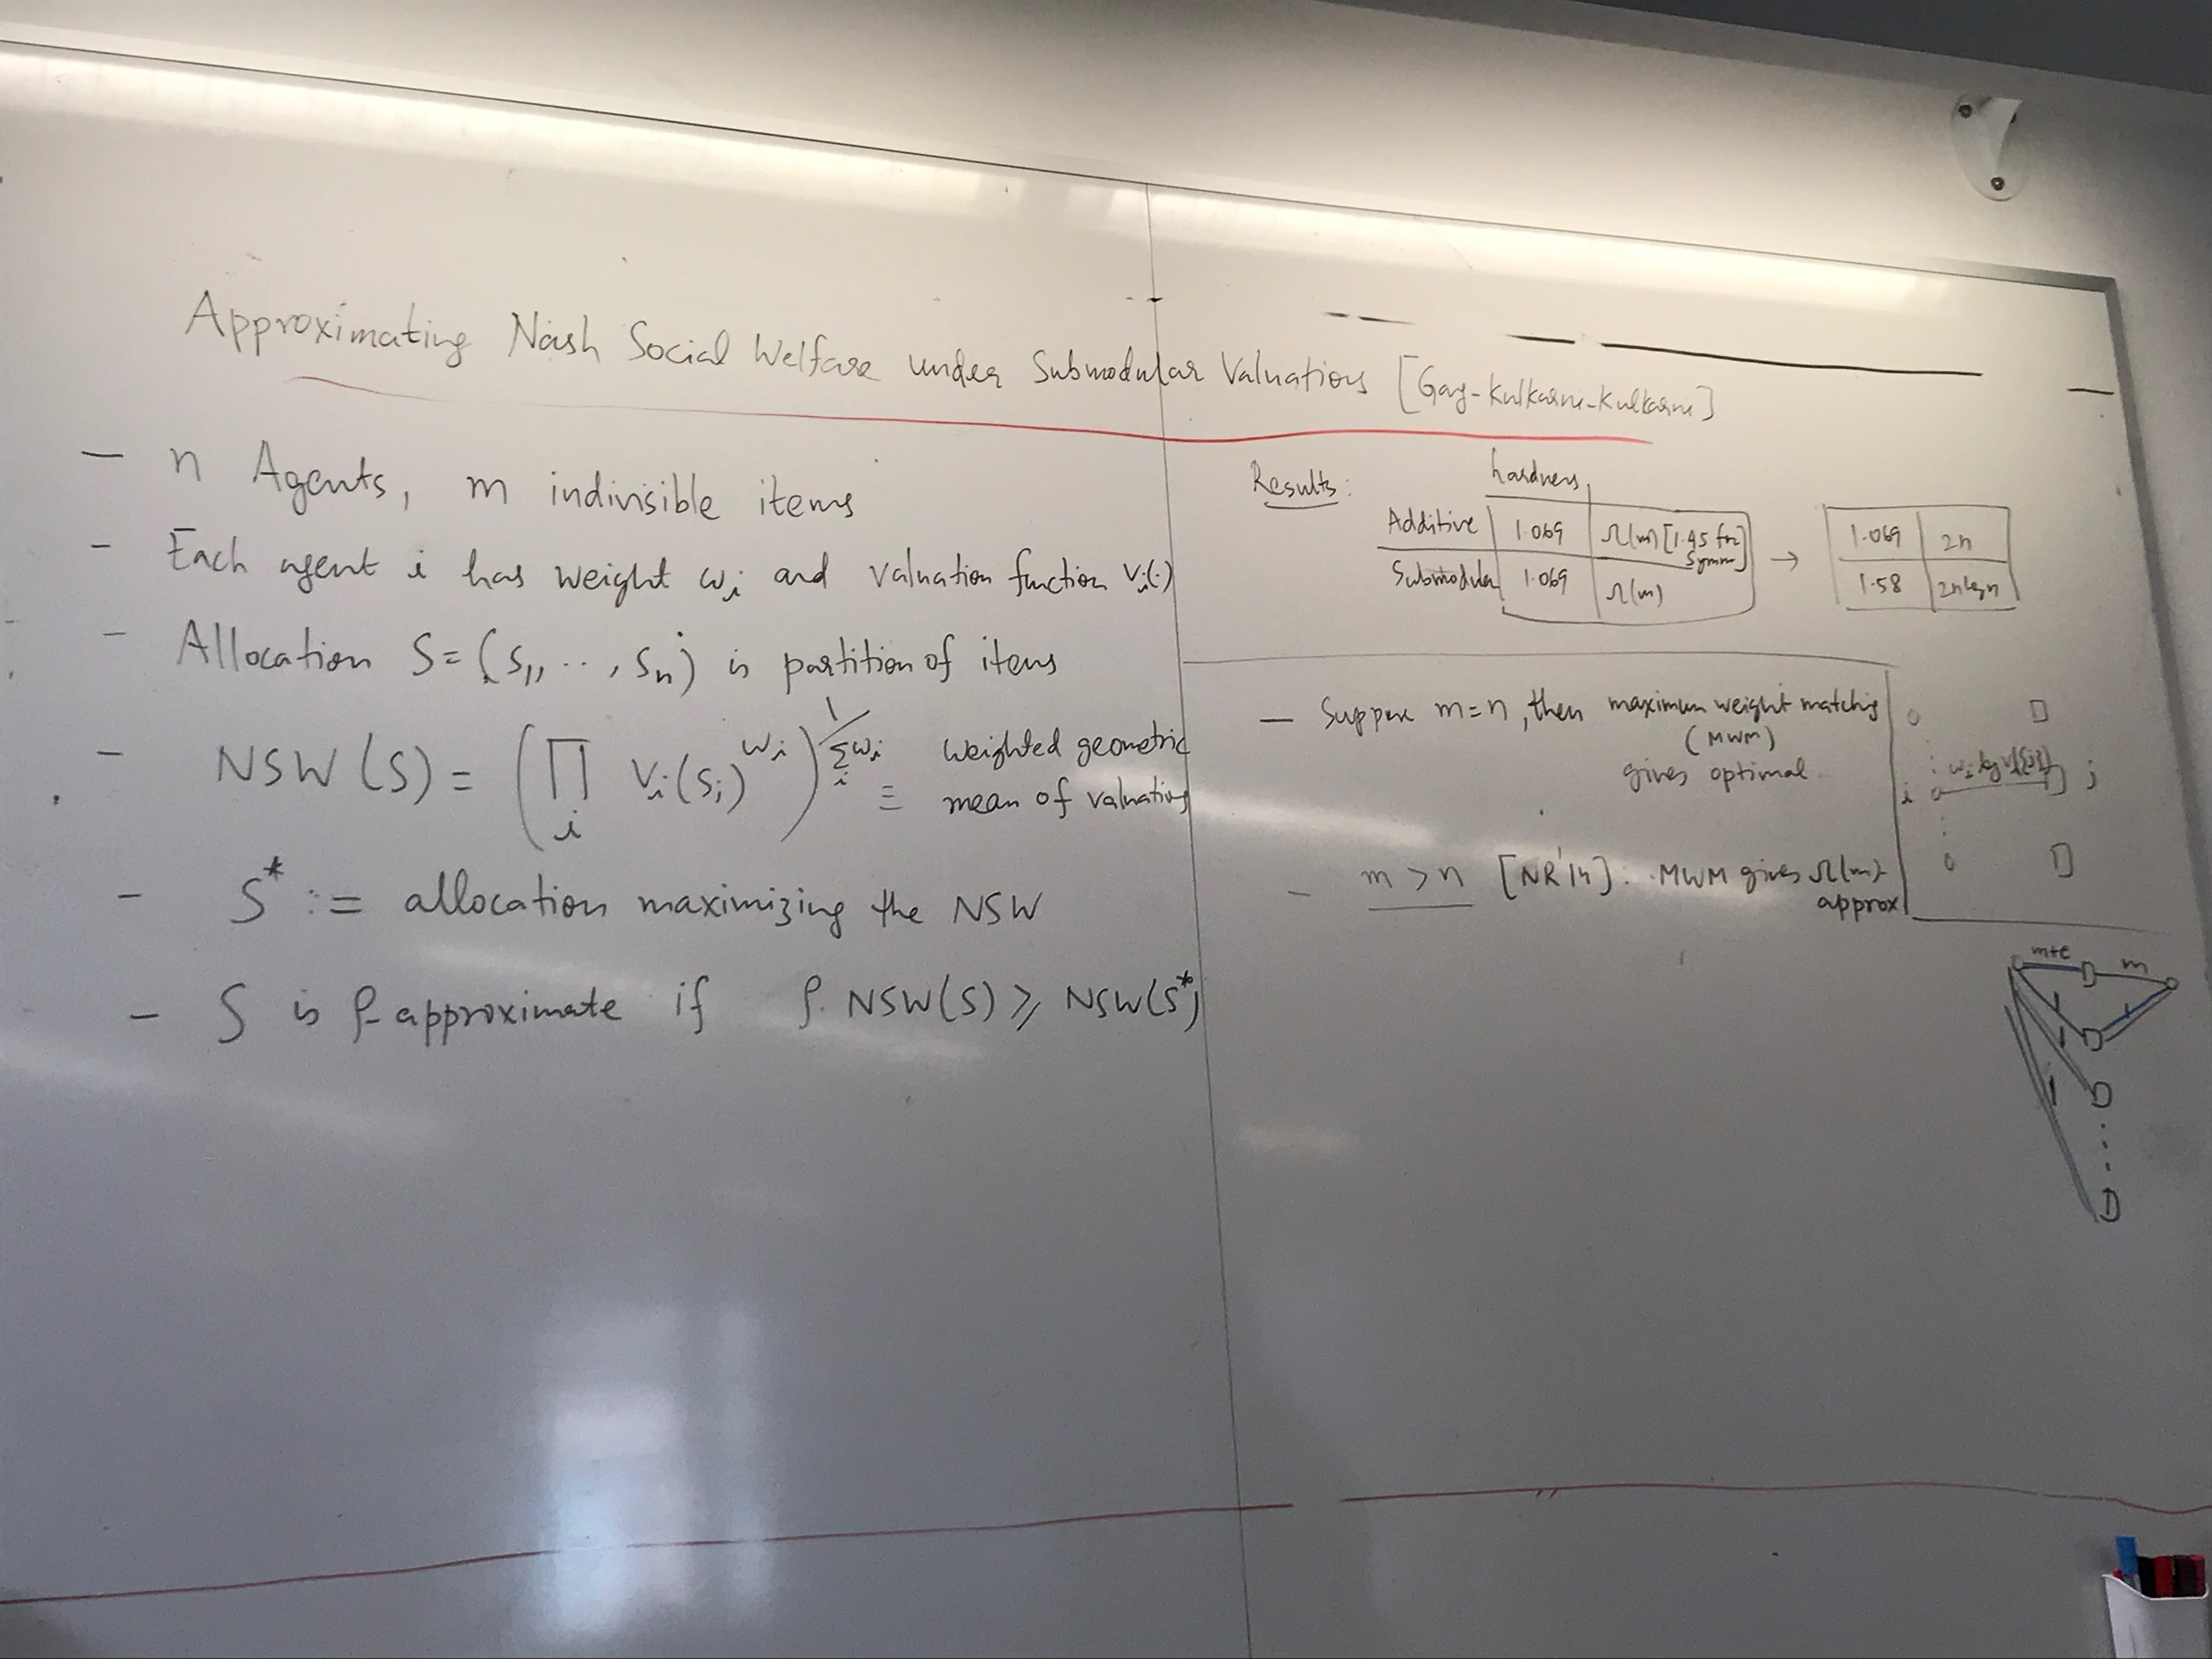 Approximating Nash Social Welfare under Submodular Valuations [Garg-Kulkarni-Kulkarni]
— n Agents, m indivisible items
- Each agent i has weight ωi and valuation function Vi(·)
- Allocation S = (S1, .. , Sn) is partition of items
- NSW(S) = (∏i Vi(Si)^wi)^1/Σi wi ≡ weighted geometric
mean of valuations
- S* := allocation maximizing the NSW
- S is ρ-approximate if ρ. NSW(S) ⩾ NSW(S*)
Results:
hardness
Additive 1.069 Ω(m) [1.45 for Symm] → 1.069 2n
Submodular 1.069 Ω(m) 1.58 2n log n
— Suppose m=n, then maximum weight matching
(MWM)
gives optimal
i wi log vi({j}) j
- m > n [NR'14]: MWM gives Ω(m)-
approx
m+ε m
1
1
1
1